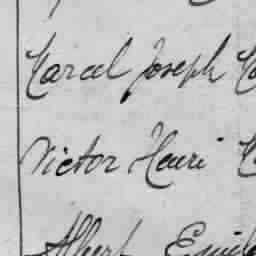 Marcel Joseph
Victor Henri
Albert Emile